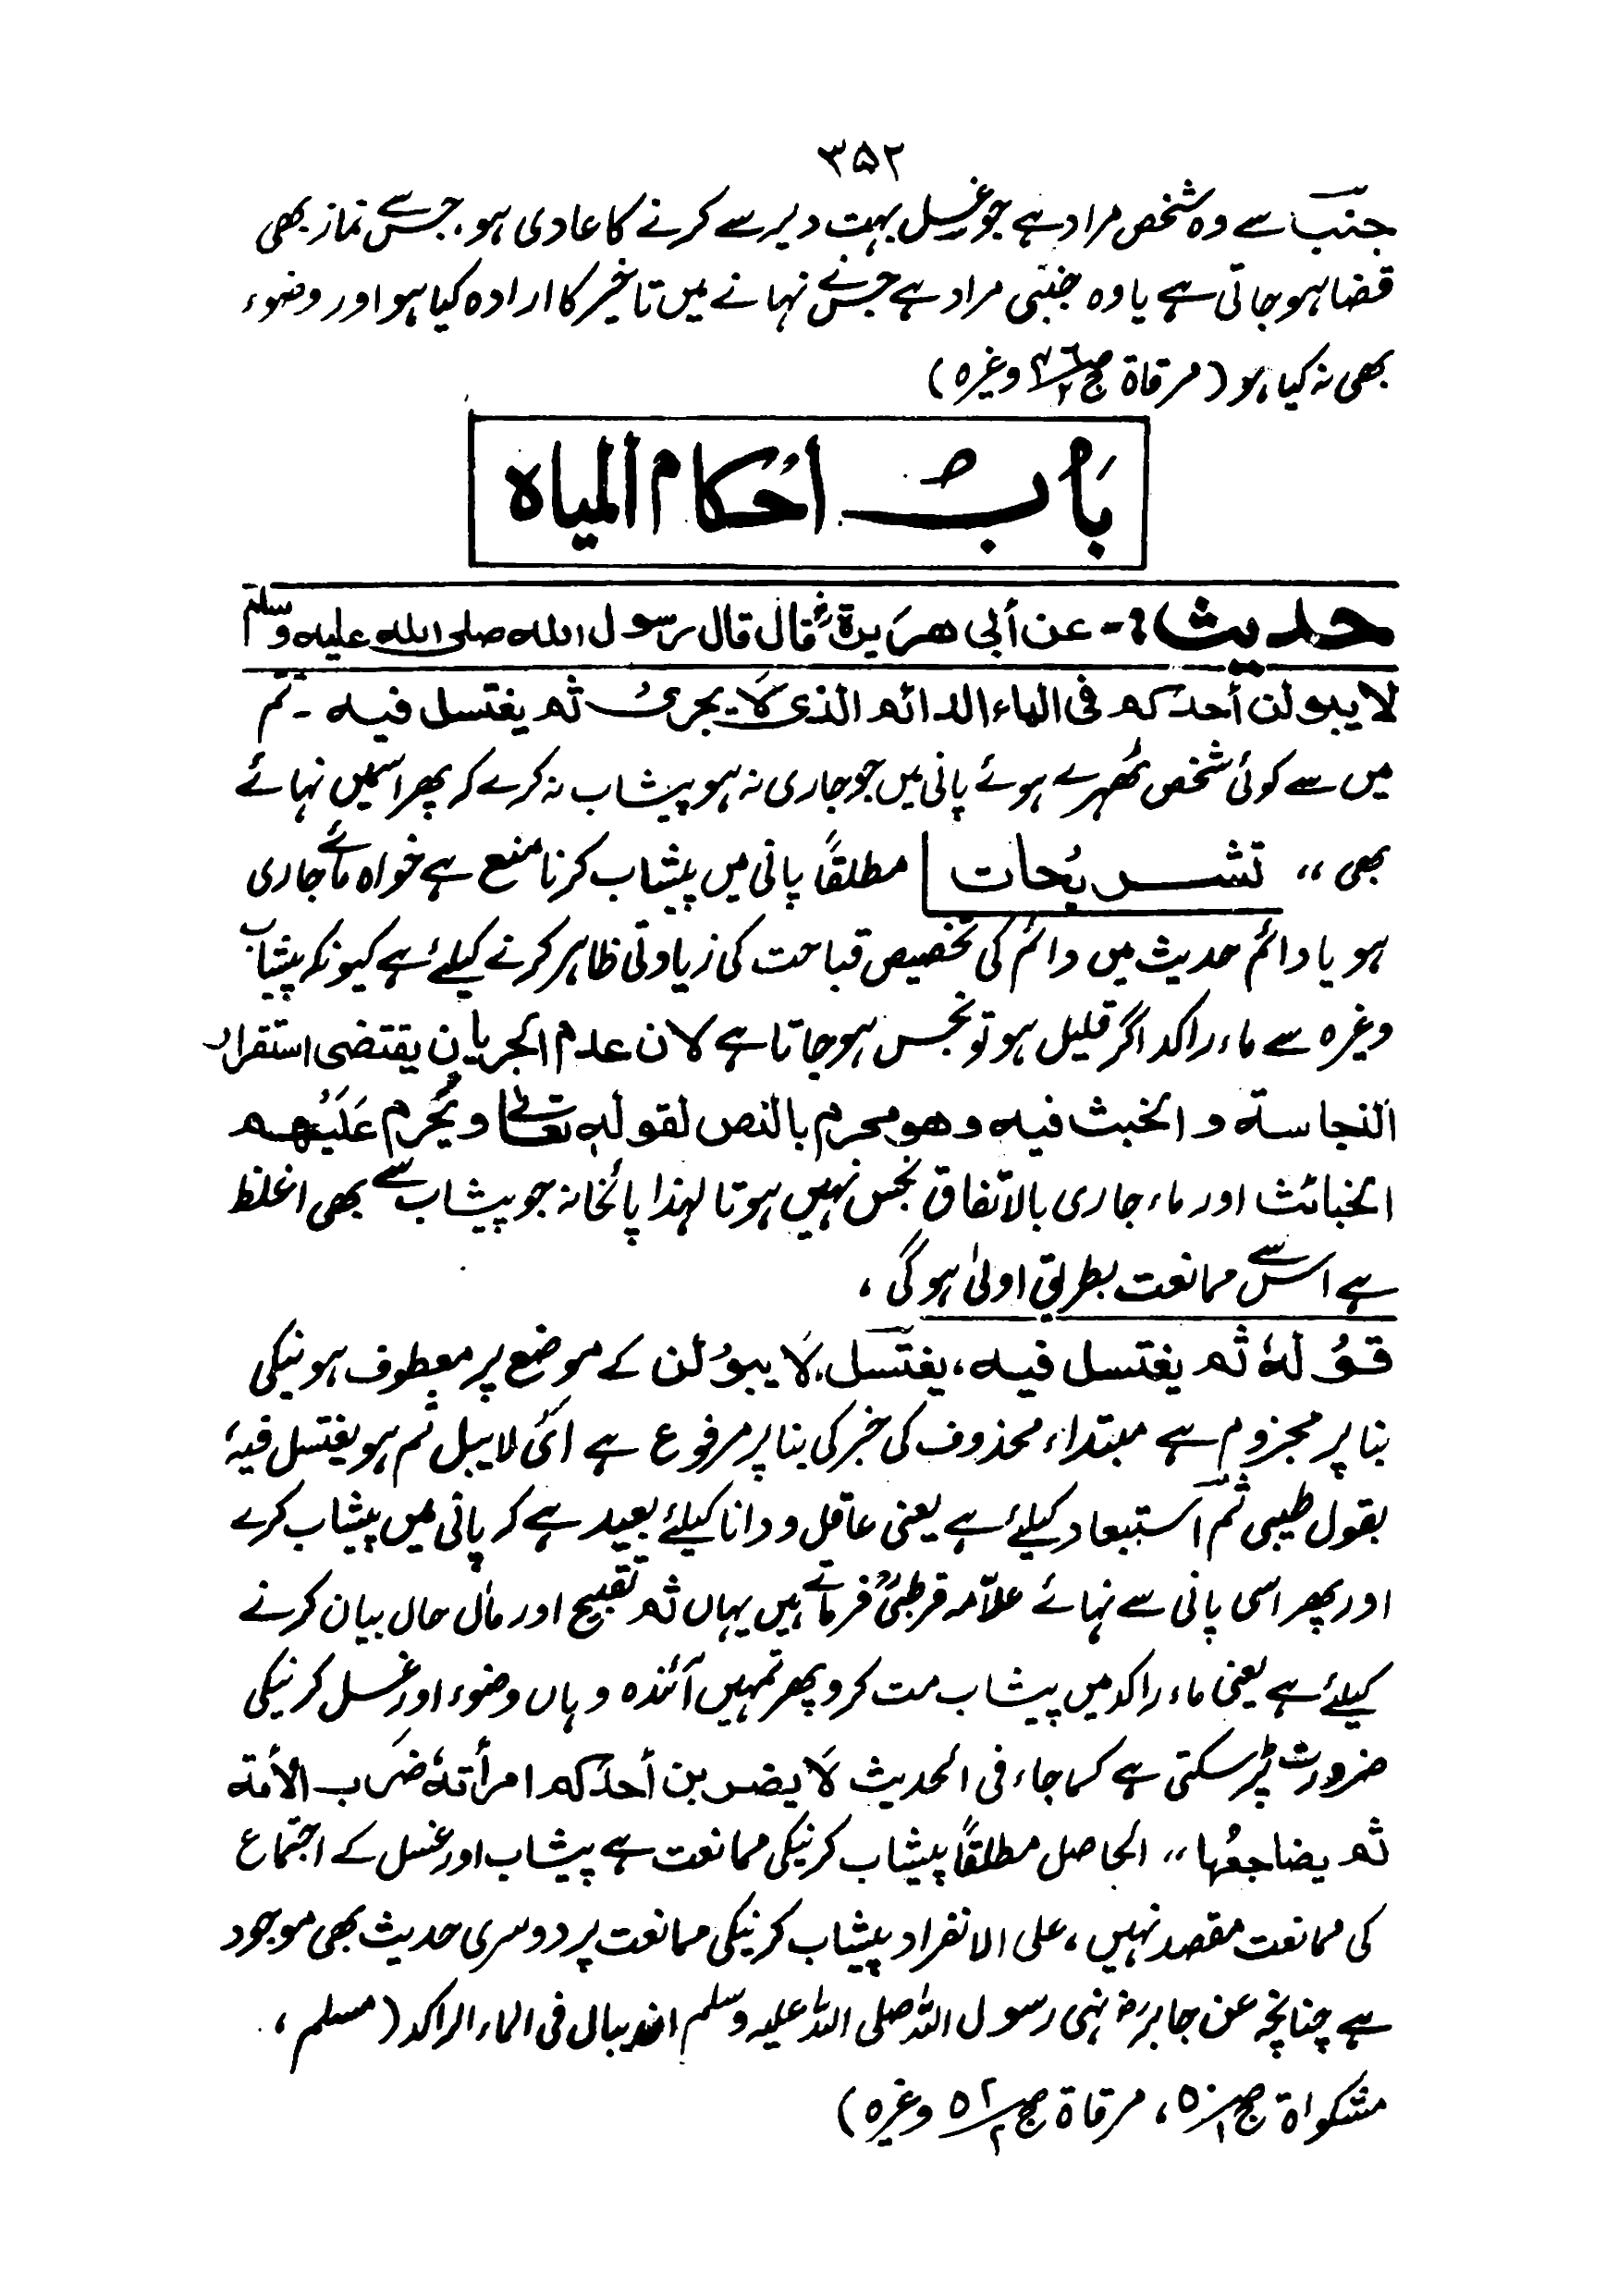 ۳۵۲
جنب سے وہ شخص مراد ہے جو غسل بہت دیر سے کرنے کا عادی ہو، جس سے نماز بھی
قضا ہو جاتی ہے یا وہ جنبی مراد ہے جس نے نہانے میں تاخیر کا ارادہ کیا ہو اور وضوء
بھی نہ کیا ہو (مرقاۃ ج۲ وغیرہ)
بَابُ اَحْکام المیاہ
حدیث :- عن أبی ھریرۃؓ قال قال رسول اللہ صلی اللہ علیہ وسلم
لا یبولن أحدکم فی الماء الدائم الذی لا یجری ثم یغتسل فیہ ۔ تم
میں سے کوئی شخص ٹھہرے ہوئے پانی میں جو جاری نہ ہو پیشاب نہ کرے کہ پھر اسمیں نہائے
بھی ،، تشریحات | مطلقاً پانی میں پیشاب کرنا منع ہے خواہ مائے جاری
ہو یا دائم حدیث میں دائم کی تخصیص قباحت کی زیادتی ظاہر کرنے کیلئے ہے کیونکہ پیشاب
وغیرہ سے ماء راکد اگر قلیل ہو تو نجس ہو جاتا ہے لان عدم الجریان یقتضی استقرار
النجاسۃ و الخبث فیہ وھو محرم بالنص لقولہٖ تعالیٰ ویُحرم عَلَیْھم
الخبائث اور ماء جاری بالاتفاق نجس نہیں ہوتا لہٰذا پائخانہ جو پیشاب سے بھی اغلظ
ہے اس سے ممانعت بطریق اولیٰ ہوگی ،
قَوْلہٗ ثم یغتسل فیہ ، یغتسل، لا یبولن کے موضع پر معطوف ہونیکی
بنا پر مجزوم ہے مبتداء محذوف کی خبر کی بنا پر مرفوع ہے ای لا یبل ثم ہو یغتسل فیہ
بقول طیبی ثم استبعاد کیلئے ہے یعنی عاقل و دانا کیلئے بعید ہے کہ پانی میں پیشاب کرے
اور پھر اسی پانی سے نہائے علاّمہ قرطبیؒ فرماتے ہیں یہاں ثم تقبیح اور مآل حال بیان کرنے
کیلئے ہے یعنی ماء راکد میں پیشاب مت کرو پھر تمہیں آئندہ وہاں وضوء اور غسل کرنیکی
ضرورت پڑ سکتی ہے کما جاء فی الحدیث لا یضربن أحدکم امرأتہٗ ضرب الأمۃ
ثم یضاجعُہا ،، الحاصل مطلقاً پیشاب کرنیکی ممانعت ہے پیشاب اور غسل کے اجتماع
کی ممانعت مقصد نہیں ، علی الانفراد پیشاب کرنیکی ممانعت پر دوسری حدیث بھی موجود
ہے چنانچہ عن جابرؓ نہی رسول اللہ صلی اللہ علیہ وسلم ان یبال فی الماء الراکد (مسلم ،
مشکواۃ ج۱ ص۵۰ ، مرقاۃ ج۲ ص۵۲ وغیرہ)